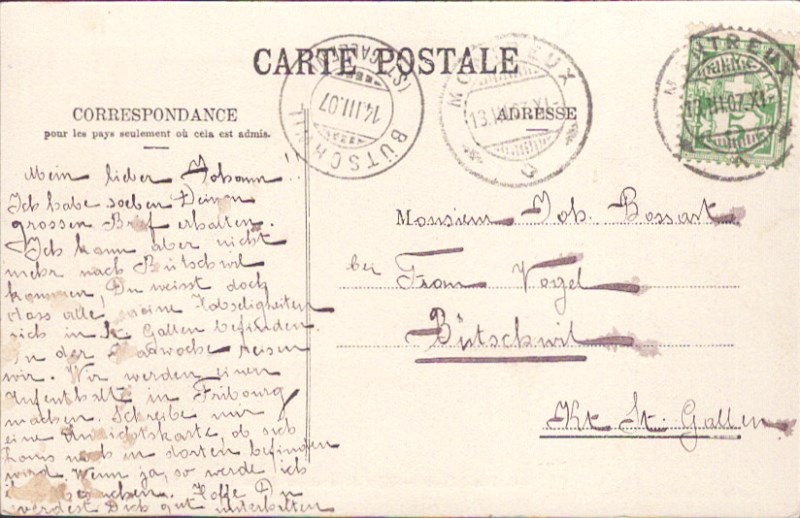 CARTE POSTALE
CORRESPONDANCE
pour les pays seulement où cela est admis.
ADRESSE
BÜTSCHWIL
(ST. GALLEN)
14.III.07
MONTREUX
13.III.07.XI
MONTREUX
13.III.07.XI
HELVETIA
Mein lieber Johann!!
Ich habe soeben Deinen
grossen Brief erhalten.
Ich kann aber nicht
mehr nach Bütschwil
kommen, Du weisst doch
dass alle meine Habseligkeiten
sich in St. Gallen befinden.
In der reisen
wir. Wir werden einen
Aufenthalt in Fribourg
machen. Schreibe mir
eine Ansichtskarte, ob sich
noch in dorten befinden
wird. Wenn ja, so werde ich
Hoffe Du
werdest Dich gut unterhalten
Monsieur Joh. Bossart
bei Frau Vogel
Bütschwil
Kt. St. Gallen